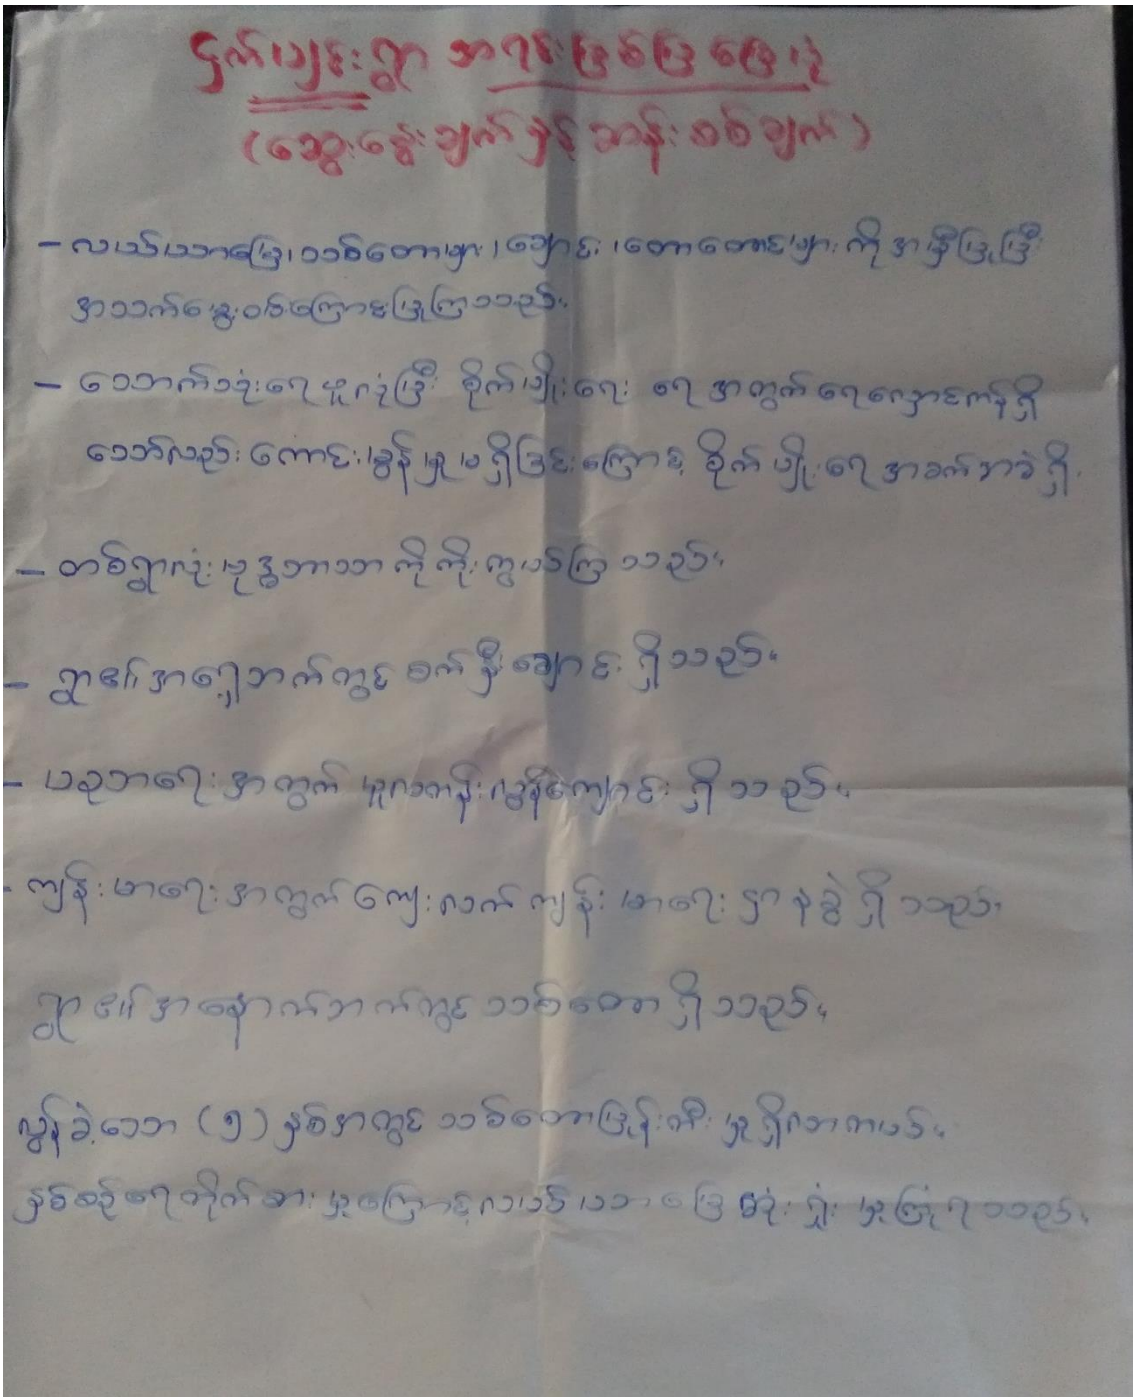 ငှက်ပျင်းရွာ အရင်းမြစ်ပြမြေပုံ
(ဆွေးနွေးချက်နှင့် ဆန်းစစ်ချက်)
- လယ်ယာမြေ၊ သစ်တောများ၊ ချောင်း၊ တောတောင်များ ကို အမှီပြုပြီး
အသက်မွေးဝမ်းကြောင်းပြုကြသည်။
- သောက်သုံးရေ ပူလုံပြီး စိုက်ပျိုးရေး ရေ အတွက် ရေလှောင်ကန်ရှိ
သော်လည်း ကောင်းမွန်မှု မရှိခြင်းကြောင့် စိုက်ပျိုးရေ အခက်အခဲရှိ
- တစ်ရွာလုံး ဗုဒ္ဓဘာသာ ကိုကိုးကွယ်ကြသည်။
- ရွာ၏ အရှေ့ဘက်တွင် စက်နှီးချောင်း ရှိသည်။
- ပညာရေး အတွက် မူလတန်းလွန်ကျောင်း ရှိသည်။
- ကျန်းမာရေး အတွက် ကျေးလက်ကျန်းမာရေးဌာနခွဲ ရှိသည်။
ရွာ၏ အနောက်ဘက်တွင် သစ်တော ရှိသည်။
လွန်ခဲ့သော (၅) နှစ်အတွင် သစ်တောပြုန်းတီးမှု ရှိလာတယ်။
နှစ်စဉ် ရေတိုက်စားမှုကြောင့် လယ်ယာမြေ ဆုံးရှုံးမှု ကြုံရသည်။